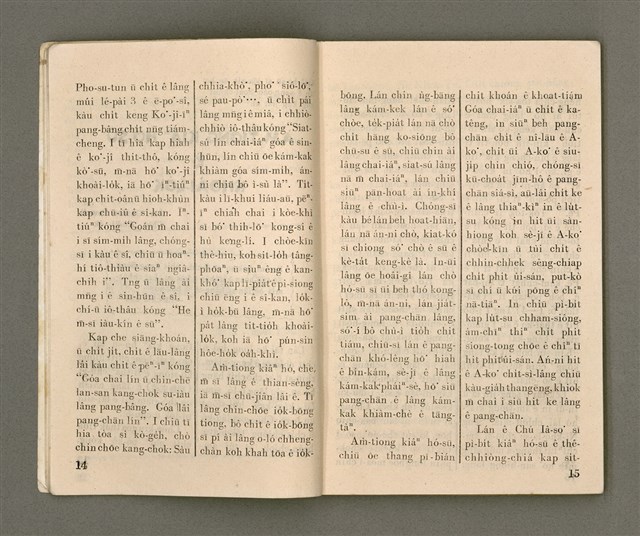 Pho-su-tun ū chit ê lâng
múi lé-pài 3 ê ē-po͘-sî,
kàu chit keng Ko͘-jî-īⁿ
pang-bāng chit nn̄g tiám-
cheng. I tī hia kap hiah
ê ko͘-jî thit-thô, kóng
kò͘-sū, m̄-nā hō͘ ko͘-jî
khoài-lo̍k, iā hō͘ īⁿ-tiúⁿ
kap chit-oân ū hioh-khùn
kap chū-iû ê sî-kan. Īⁿ-
tiúⁿ kóng "Goán m̄ chai
i sī sím-mih lâng, chóng-
sī i kàu ê sî, chiū ū hoaⁿ-
hí tiô-thiàu ê siaⁿ ngiâ-
chih i". Tng ū lâng ài
mn̄g i ê sin-hūn ê sî, i
chiū iô-thâu kóng "He
m̄-sī iàu-kín ê sū".
Kap che siāng-khoán,
ū chit ji̍t, chit ê lāu-lâng
lâi kàu chit ê pēⁿ-īⁿ kóng
"Góa chai lín ū chin-chē
lan-san kang-chok su-iàu
lâng pang-bâng. Góa lâi
pang-chān lín". I chiū tī
hia tòa sì kò-ge̍h, chò
chin chōe kang-chok: Sáu
14
chhia-khò͘, pho͘ sió-lō͘,
sé pau-pò͘···, ū chit pái
lâng mn̄g i ê miâ, i chhiò-
chhiò iô-thâu kóng "Siat-
sú lín chai-iáⁿ góa ê sin-
hūn, lín chiū ōe kám-kak
khiàm góa sím-mih, án-
ni chiū bô ì-sù lā". Tit-
kàu i lī-khui liáu-āu, pēⁿ-
īⁿ chiah chai i kòe-khì
sī bó͘ thih-lō͘ kong-si ê
hù keng-lí. I chòe-kīn
thè-hiu, koh sit-lo̍h tâng-
phōaⁿ, ū siuⁿ êng ê kan-
khó͘ kap lī-pia̍t ê pi-siong
chiū êng i ê sî-kan, lo̍k-
ì ho̍k-bū lâng, m̄-nā hō͘
pa̍t lâng tit-tio̍h khoài-
lo̍k, koh iā hō͘ pún-sin
hôe-ho̍k oa̍h-khì.
Àm-tiong kiâⁿ hó, chè,
m̄ sī lâng ê thian-sèng,
iā m̄-sī chū-jiân lâi ê. Tī
lâng chìn-chōe io̍k-bōng
tiong, bô chit ê io̍k-bōng
sī pí ài lâng o-ló chheng-
chàn koh khah tōa ê io̍k-
bōng. Lán chin ǹg-bāng
lâng kám-kek lán ê só͘
chòe, te̍k-pia̍t lán nā chò
chit hāng ko-siōng bô
chū-su ê sū, chiū chin ài
lâng chai-iáⁿ, siat-sú lâng
nā m̄ chai-iáⁿ, lán chiū
siūⁿ pān-hoat ài ín-khí
lâng ê chù-ì. Chóng-sī
kàu bé lán beh hoat-hiān,
lán nā án-ni chò, kiat-kó
sī chiong só͘ chò ê sū ê
kè-ta̍t keng-kè la. In-ūi
lâng ōe hoâi-gî lán chò
hó-sū sī ūi beh thó kong-
lô, m̄-nā án-ni, lán jia̍t-
sim ài pang-chān lâng,
só͘-í bô chù-ì tio̍h chit
tiám, chiū-sī lán ê pang-
chān khó-lêng hō͘ hiah
ê bîn-kám, sè-jī ê lâng
kám-kak pháiⁿ-sè, hō͘ siū
pang-chān ê lâng kám-
kak khiàm-chè ê tāng-
tàⁿ.
Àm-tiong kiâⁿ hó-sū,
chiū ōe thang pī-bián
chit khoán ê khoat-tiám
Góa chai-iáⁿ ū chit ê ka-
têng, in siūⁿ beh pang-
chān chit ê nî-lāu ê A-
ko͘, chit ūi A-ko͘ ê siu-
ji̍p chin chió, chóng-sī
kū-choat jīm-hô ê pang-
chān sià-sì, aū-lâi chit ke
ê lâng thiaⁿ-kìⁿ in ê lu̍t-
su kóng in hit ūi sàn-
hiong koh sè-jī ê A-ko͘
chòe-kīn ū tùi chit ê
chhin-chhek sêng-chiap
chit phit ûi-sán, put-kò
sī chi ū kúi póng ê chîⁿ
nā-tiāⁿ. In chiū pī-bi̍t
kap lu̍t-su chham-siông,
àm-chīⁿ thīⁿ chit phit
siong-tong chōe ê chîⁿ tī
hit phit ûi-sán. Án-ni hit
ê A-ko͘ chit-sî-lâng chiū
kàu-gia̍h thang ēng, khiok
m̄ chai i siū hit ke lâng
ê pang-chān.
Lán ê Chú Iâ-so͘ sī
pí-bi̍t kiâⁿ hó-sū ê thê-
chhiòng-chiá kap si̍t-
15